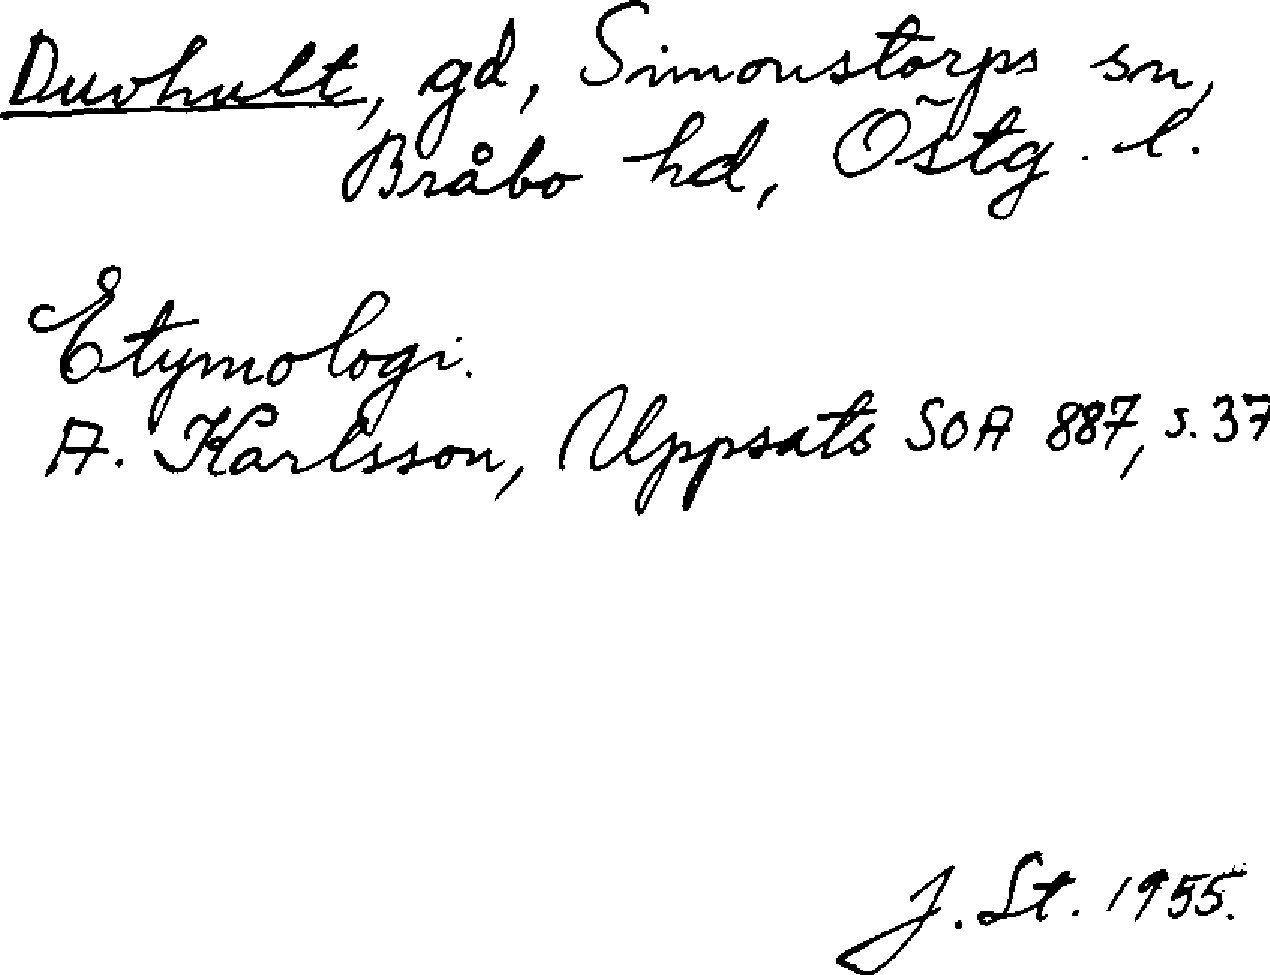 Duvhult, gd, Simonstorps sn,
Bråbo hd, Östg. l.
Etymologi.
A. Karlsson, Uppsats SOA 887, s. 37
J. St. 1955.